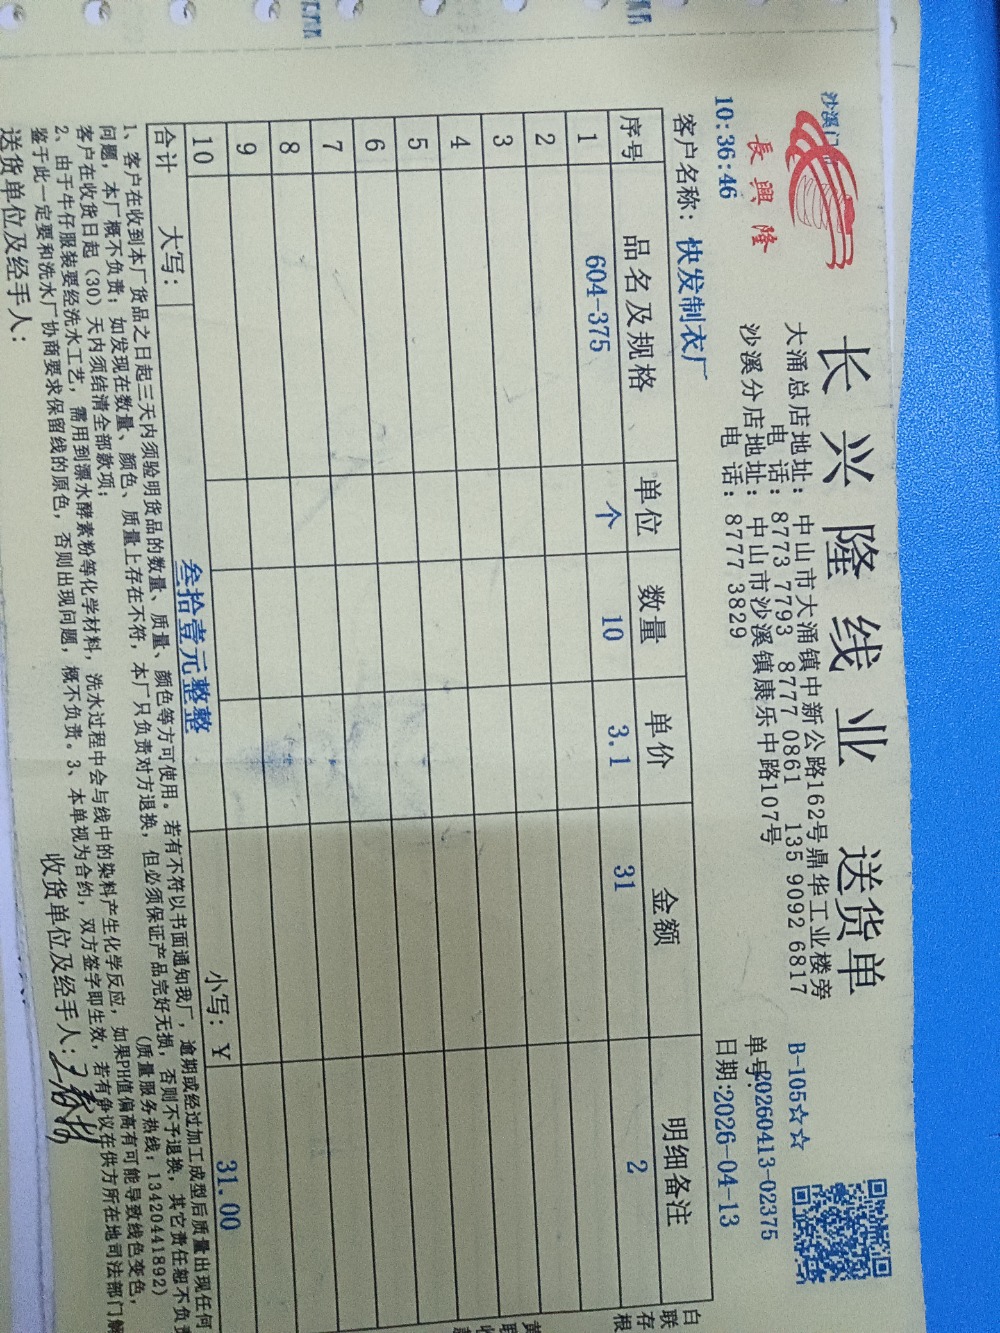 长兴隆线业 送货单
長興隆
沙溪门
大涌总店地址: 中山市大涌镇中新公路162号鼎华工业楼旁
电 话: 8773 7793 8777 0861 135 9092 6817
沙溪分店地址: 中山市沙溪镇康乐中路107号
电 话: 8777 3829
B-105☆☆
单号:20260413-02375
日期:2026-04-13
10:36:46
客户名称: 快发制衣厂
序号 品名及规格 单位 数量 单价 金额 明细备注
1 604-375 个 10 3.1 31 2
2
3
4
5
6
7
8
9
10
合计 大写: 叁拾壹元整整 小写: ¥ 31.00
1、客户在收到本厂货品之日起三天内须验明货品的数量、质量、颜色等方可使用。若有不符以书面通知我厂,逾期或经过加工成型后质量出现任何
问题,本厂概不负责;如发现在数量、颜色、质量上存在不符,本厂只负责对方退换,但必须保证产品完好无损,否则不予退换,其它责任恕不负责
客户在收货日起(30)天内须结清全部款项; (质量服务热线:13420441892)
2、由于牛仔服装要经洗水工艺,需用到漂水酵素粉等化学材料,洗水过程中会与线中的染料产生化学反应,如果PH值偏高有可能导致线色变色,
鉴于此一定要和洗水厂协商要求保留线的原色,否则出现问题,概不负责。3、本单视为合约,双方签字即生效,若有争议在供方所在地司法部门解
送货单位及经手人: 收货单位及经手人:
白联存根